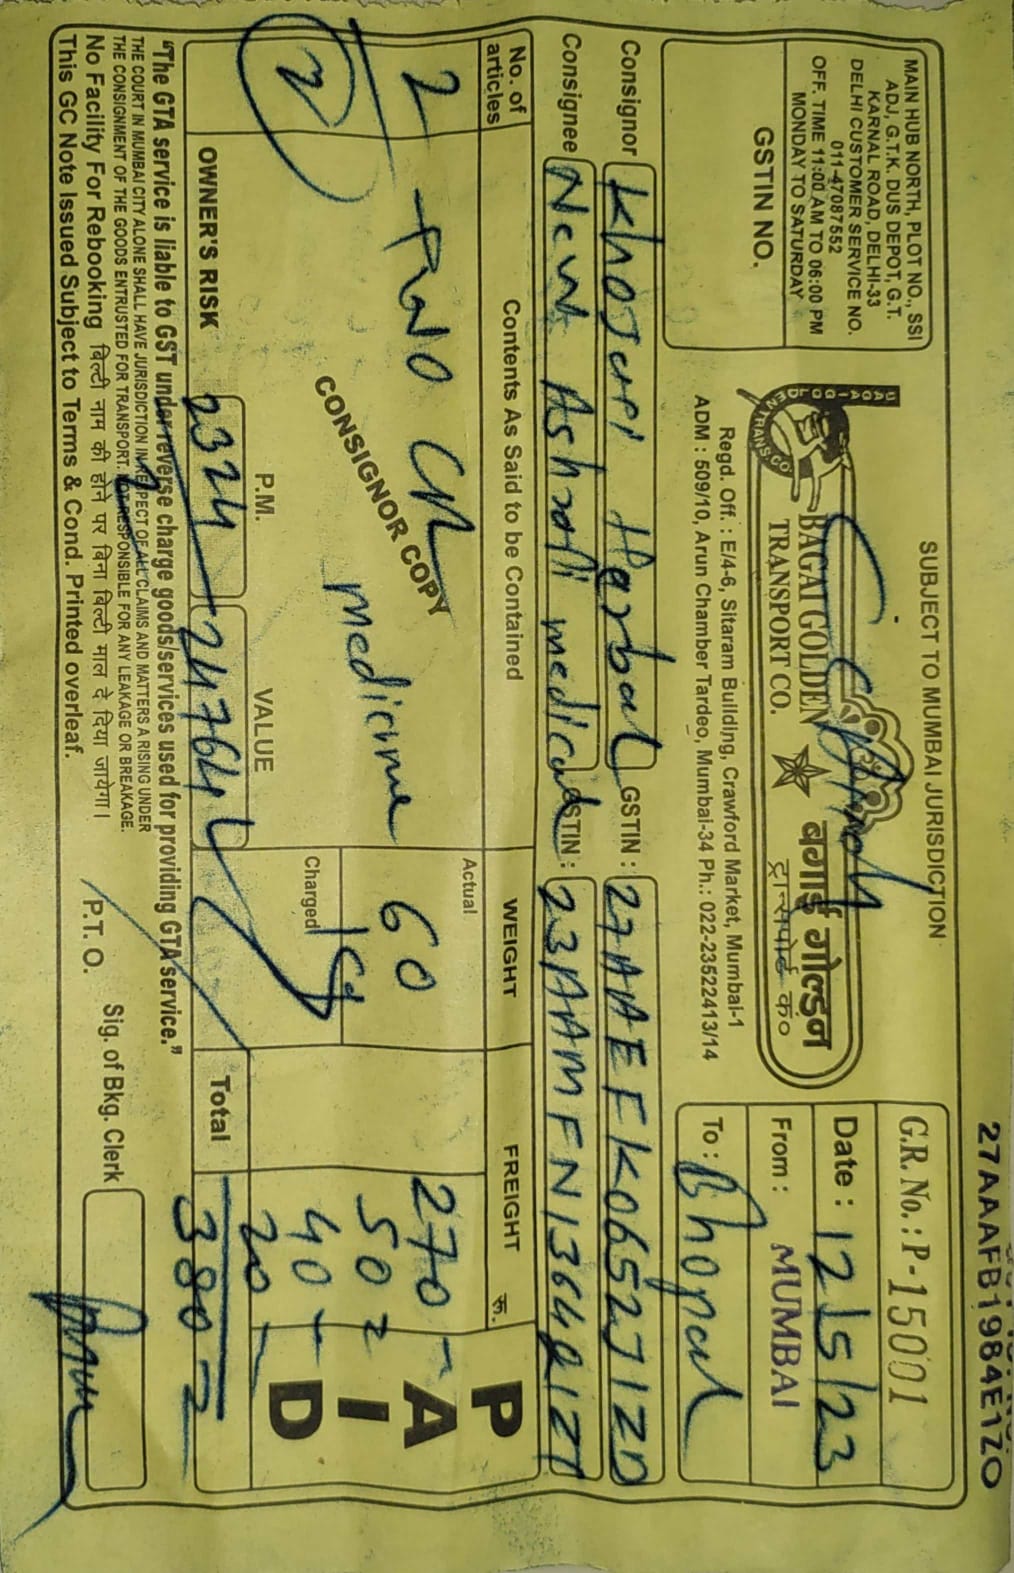 27AAAFB1984E1ZO
SUBJECT TO MUMBAI JURISDICTION
MAIN HUB NORTH, PLOT NO., SSI
ADJ, G.T.K. DUS DEPOT, G.T.
KARNAL ROAD, DELHI-33
DELHI CUSTOMER SERVICE NO.
011-47087552
OFF. TIME 11:00 AM TO 06:00 PM
MONDAY TO SATURDAY
GSTIN NO.
BAGAI GOLDEN TRANS.CO.
BAGAI GOLDEN
TRANSPORT CO.
बगाई गोल्डन
ट्रान्सपोर्ट कं०
Regd. Off. : E/4-6, Sitaram Building, Crawford Market, Mumbai-1
ADM : 509/10, Arun Chamber Tardeo, Mumbai-34 Ph.: 022-23522413/14
G.R. No.: P-15001
Date : 12/5/23
From : MUMBAI
To : Bhopal
Consignor Khojati Herbal GSTIN : 27AAEFK0652J1ZD
Consignee New Ashrafi medical GSTIN : 23AAMFN1364Q1ZT
No. of articles Contents As Said to be Contained WEIGHT FREIGHT रु.
Actual
2 TWO 60 270
CONSIGNOR COPY
medicine
50
2 Charged 40
P.M. VALUE 20
OWNER'S RISK 2324 24764 Total 380
PAID
"The GTA service is liable to GST under reverse charge goods/services used for providing GTA service."
THE COURT IN MUMBAI CITY ALONE SHALL HAVE JURISDICTION IN RESPECT OF ALL CLAIMS AND MATTERS A RISING UNDER
THE CONSIGNMENT OF THE GOODS ENTRUSTED FOR TRANSPORT. NOT RESPONSIBLE FOR ANY LEAKAGE OR BREAKAGE.
No Facility For Rebooking बिल्टी नाम की होने पर बिना बिल्टी माल दे दिया जायेगा।
This GC Note Issued Subject to Terms & Cond. Printed overleaf.
P.T.O.
Sig. of Bkg. Clerk